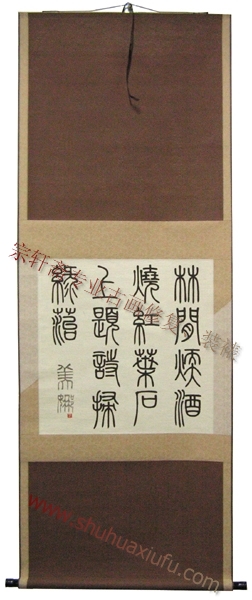 林間煖酒
燒紅葉石
上題詩掃
綠苔
宗轩斋专业古画修复、装裱
www.shuhuaxiufu.com